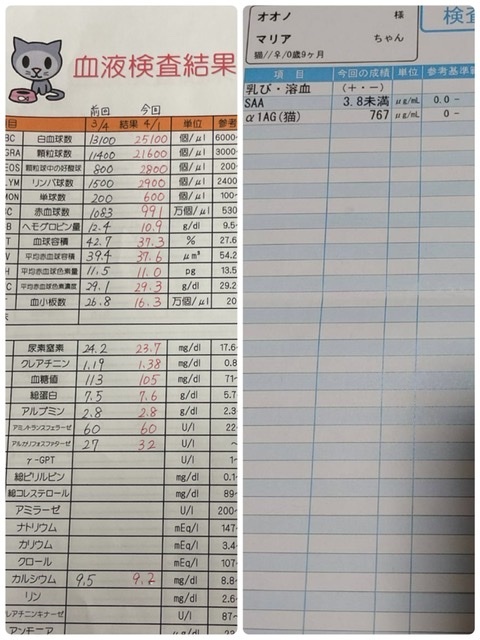 血液検査結果
前回 今回
項目 3/4 結果 4/1 単位 参考
BC 白血球数 13100 25100 個/μl 6000-
GRA 顆粒球数 11400 21600 個/μl 3000-
EOS 顆粒球中の好酸球 800 2800 個/μl 200-
LYM リンパ球数 1500 2900 個/μl 2400
MON 単球数 200 600 個/μl 100-
BC 赤血球数 1083 991 万個/μl 530
B ヘモグロビン量 12.4 10.9 g/dl 9.5-
T 血球容積 42.7 37.3 % 27.6
V 平均赤血球容積 39.4 37.6 μm³ 54.2
H 平均赤血球色素量 11.5 11.0 pg 13.5
C 平均赤血球色素濃度 29.1 29.3 g/dl 29.2
T 血小板数 26.8 16.3 万個/μl 20
尿素窒素 24.2 23.7 mg/dl 17.6-
クレアチニン 1.19 1.38 mg/dl 0.8
血糖値 113 105 mg/dl 71-
総蛋白 7.5 7.6 g/dl 5.7
アルブミン 2.8 2.8 g/dl 2.3-
アミノトランスフェラーゼ 60 60 U/l 22-
アルカリフォスファターゼ 27 32 U/l ~
γ-GPT U/l 1-
総ビリルビン mg/dl 0.1-
総コレステロール mg/dl 89-
アミラーゼ U/l 200-
ナトリウム mEq/l 147-
カリウム mEq/l 3.4-
クロール mEq/l 107-
カルシウム 9.5 9.2 mg/dl 8.8-
リン mg/dl 2.6-
レアチニンキナーゼ U/l 87-
アンモニア μg/dl
検査
オオノ 様
マリア ちゃん
猫//♀/0歳9ヶ月
項目 今回の成績 単位 参考基準範
乳び・溶血 (+・-)
SAA 3.8未満 μg/mL 0.0 -
α1AG(猫) 767 μg/mL 0 -